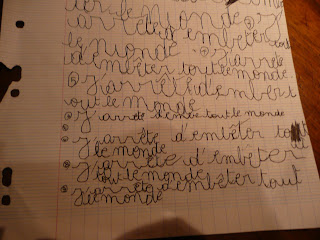 ter le monde
arrête d'embêter tout
le monde J'arrête
d'embêter tout le monde
J'arrête d'embert
out le monde
J'arrête d'embêter tout le monde
J'arrête d'embêter tout
le monde
J'arrête d'embêter
tout le monde
J'arrête d'embêter tout
le monde